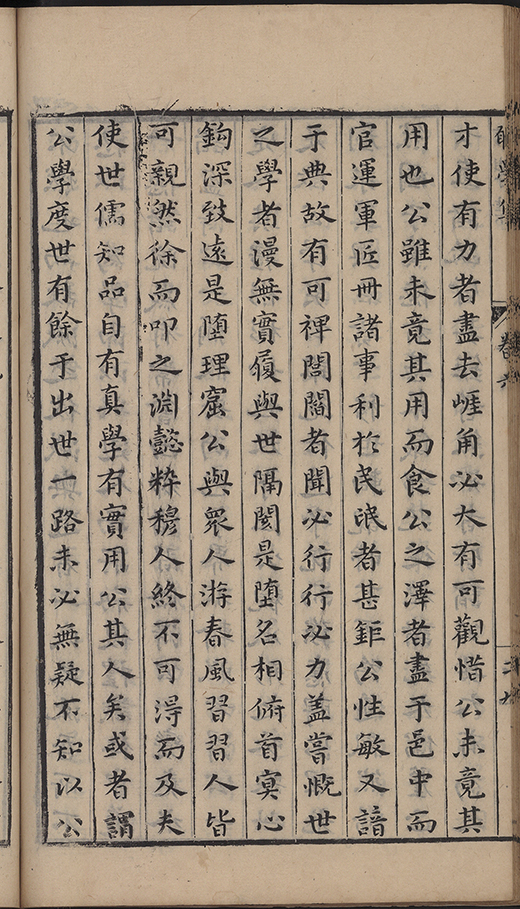 才使有力者盡去崕角必大有可觀惜公未竟其
用也公雖未竟其用而食公之澤者盡于邑中而
官運軍匠冊諸事利於民氓者甚鉅公性敏又諳
于典故有可裨閭閻者聞必行行必力盖嘗慨世
之學者漫無實履與世隔閡是墮名相俯首㝠心
鈎深致遠是堕理窟公與衆人游春風習習人皆
可親然徐而叩之淵懿粹穆人終不可得而及夫
使世儒知品自有真學有實用公其人矣或者謂
公學度世有餘于出世一路未必無疑不知以公
卷六